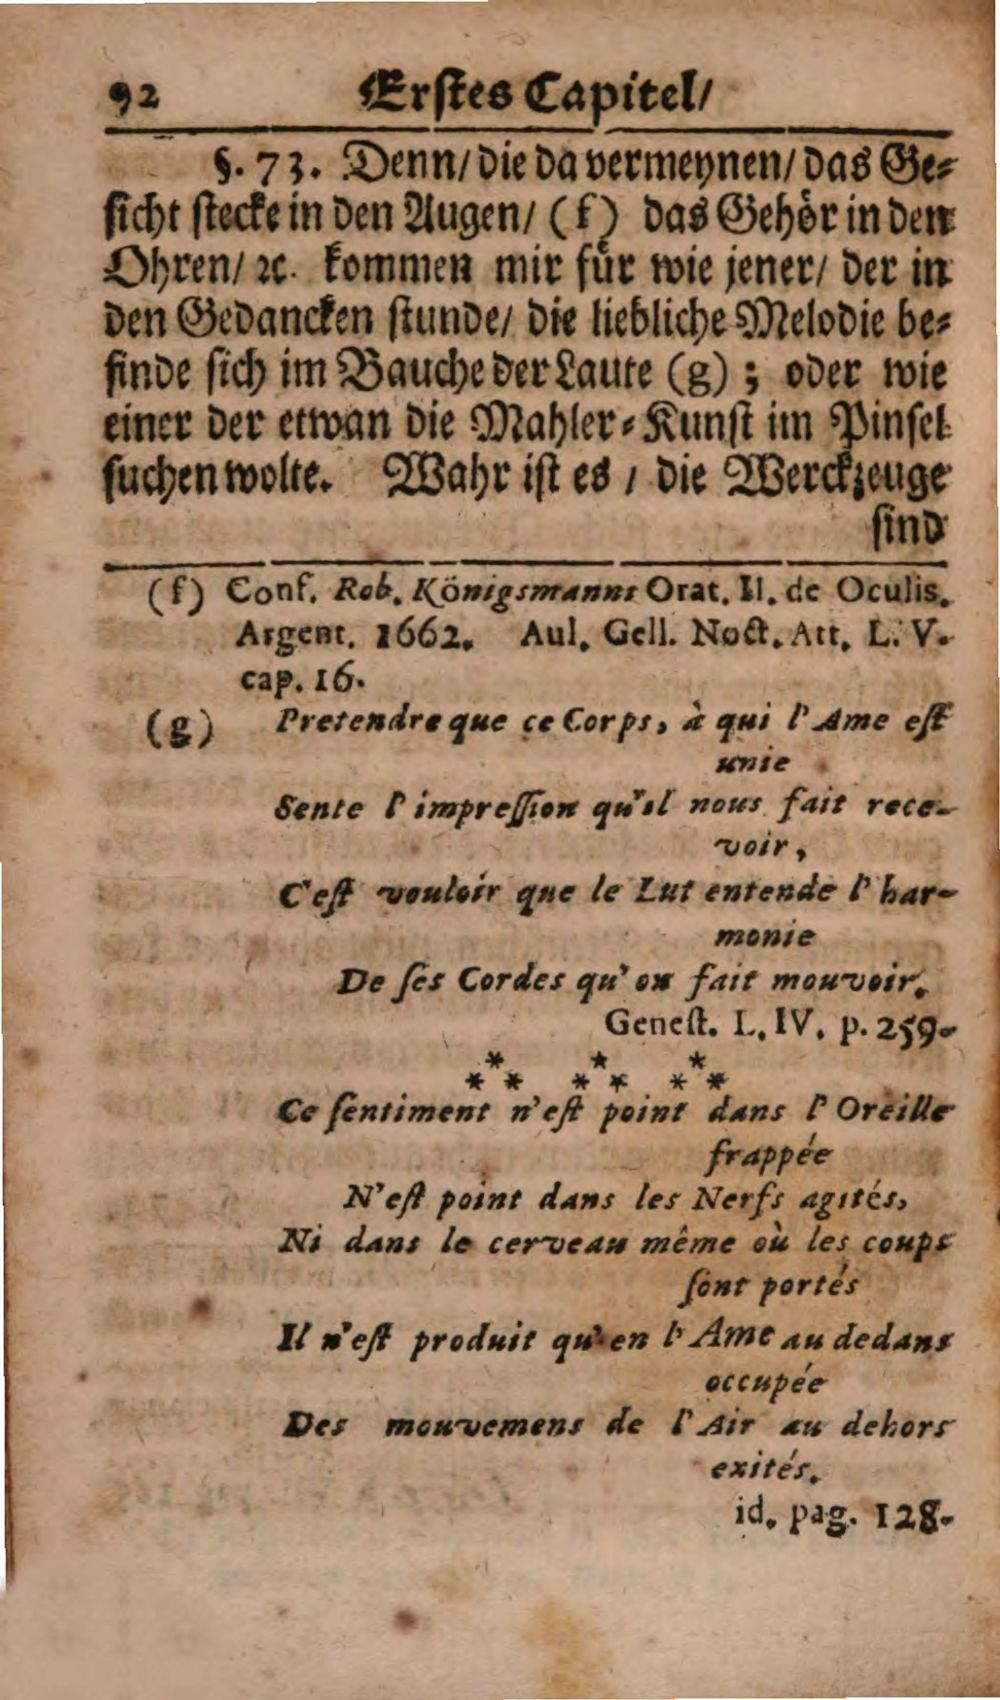 92 Erstes Capitel/
§. 73. Denn/ die da vermeynen/ das Ge-
sicht stecke in den Augen/ (f) das Gehör in den
Ohren/ ꝛc. kommen mir für wie jener/ der in
den Gedancken stunde/ die liebliche Melodie be-
finde sich im Bauche der Laute (g) ; oder wie
einer der etwan die Mahler-Kunst im Pinsel
suchen wolte. Wahr ist es / die Werckzeuge
sind
(f) Conf. Rob. Königsmanns Orat. II. de Oculis.
Argent. 1662. Aul. Gell. Noct. Att. L. V.
cap. 16.
(g) Pretendre que ce Corps, à qui l'Ame eſt
unie
Sente l'impreſſion qu'il nous fait rece-
voir,
C'eſt vouloir que le Lut entende l'har-
monie
De ſes Cordes qu'on fait mouvoir.
Geneſt. L. IV. p. 259.
* * *
* * * * * *
Ce ſentiment n'eſt point dans l'Oreille
frappée
N'eſt point dans les Nerfs agités,
Ni dans le cerveau même où les coups
ſont portés
Il n'eſt produit qu'en l'Ame au dedans
occupée
Des mouvemens de l'Air au dehors
exités.
id. pag. 128.